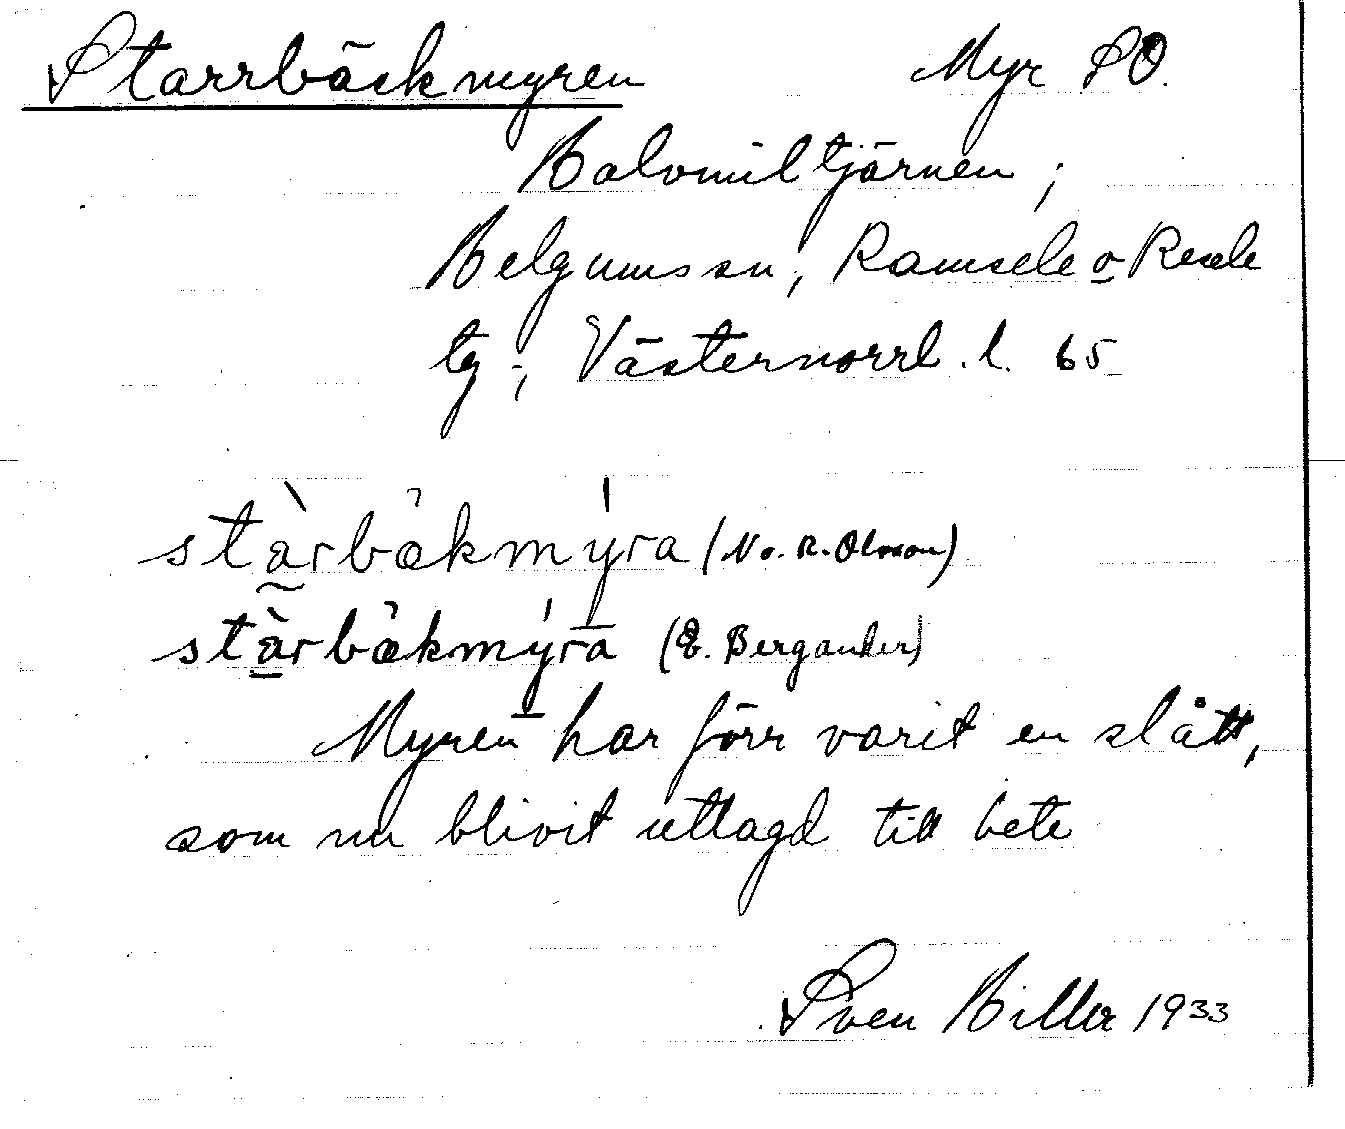 Starrbäckmyren Myr SO.
Balvmiltjärnen;
Belgumsån; Ramsele o Resele
tg; Västernorrl. l. 65
stàrbäkmýra (No. R. Olsson)
stàrbäkmýra (E. Bergander)
Myren har förr varit en slått,
som nu blivit uttagd till bete
Sven Biller 1933